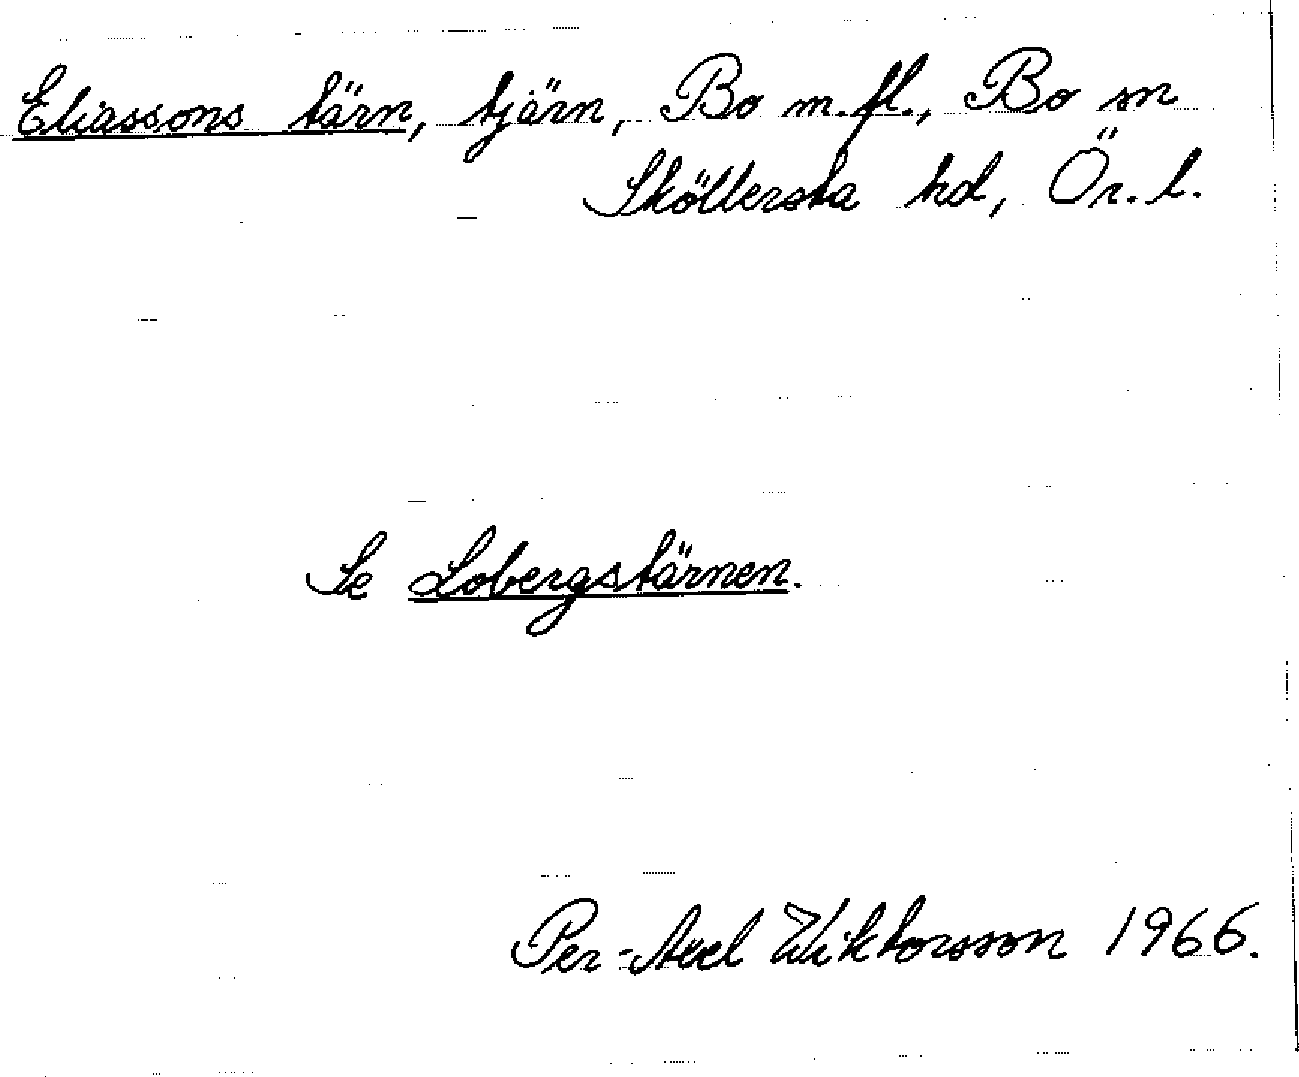 Eliassons tärn, tjärn, Bo m.fl., Bo sn
Sköllersta hd, Ör. l.
Se Lobergstärnen.
Per-Axel Wiktorsson 1966.